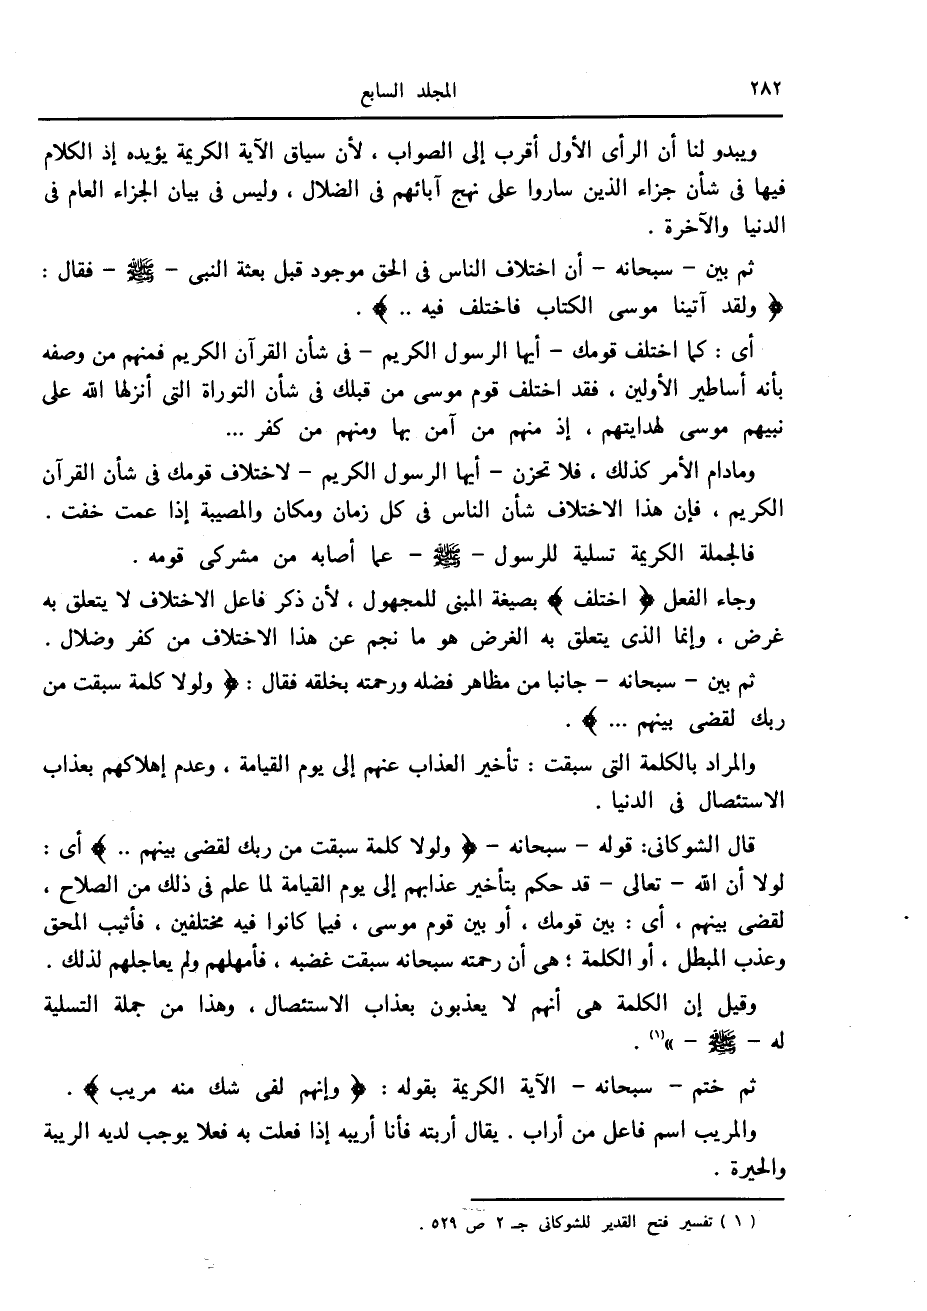 ٢٨٢ المجلد السابع
ويبدو لنا أن الرأى الأول أقرب إلى الصواب ، لأن سياق الآية الكريمة يؤيده إذ الكلام
فيها فى شأن جزاء الذين ساروا على نهج آبائهم فى الضلال ، وليس فى بيان الجزاء العام فى
الدنيا والآخرة .
ثم بين – سبحانه – أن اختلاف الناس فى الحق موجود قبل بعثة النبى – ﷺ – فقال :
﴿ ولقد آتينا موسى الكتاب فاختلف فيه .. ﴾ .
أى : كما اختلف قومك – أيها الرسول الكريم – فى شأن القرآن الكريم فمنهم من وصفه
بأنه أساطير الأولين ، فقد اختلف قوم موسى من قبلك فى شأن التوراة التى أنزلها الله على
نبيهم موسى لهدايتهم ، إذ منهم من آمن بها ومنهم من كفر ...
ومادام الأمر كذلك ، فلا تحزن – أيها الرسول الكريم – لاختلاف قومك فى شأن القرآن
الكريم ، فإن هذا الاختلاف شأن الناس فى كل زمان ومكان والمصيبة إذا عمت خفت .
فالجملة الكريمة تسلية للرسول – ﷺ – عما أصابه من مشركى قومه .
وجاء الفعل ﴿ اختلف ﴾ بصيغة المبنى للمجهول ، لأن ذكر فاعل الاختلاف لا يتعلق به
غرض ، وإنما الذى يتعلق به الغرض هو ما نجم عن هذا الاختلاف من كفر وضلال .
ثم بين – سبحانه – جانبا من مظاهر فضله ورحمته بخلقه فقال : ﴿ ولولا كلمة سبقت من
ربك لقضى بينهم ... ﴾ .
والمراد بالكلمة التى سبقت : تأخير العذاب عنهم إلى يوم القيامة ، وعدم إهلاكهم بعذاب
الاستئصال فى الدنيا .
قال الشوكانى: قوله – سبحانه – ﴿ ولولا كلمة سبقت من ربك لقضى بينهم .. ﴾ أى :
لولا أن الله – تعالى – قد حكم بتأخير عذابهم إلى يوم القيامة لما علم فى ذلك من الصلاح ،
لقضى بينهم ، أى : بين قومك ، أو بين قوم موسى ، فيما كانوا فيه مختلفين ، فأثيب المحق
وعذب المبطل ، أو الكلمة ؛ هى أن رحمته سبحانه سبقت غضبه ، فأمهلهم ولم يعاجلهم لذلك .
وقيل إن الكلمة هى أنهم لا يعذبون بعذاب الاستئصال ، وهذا من جملة التسلية
له – ﷺ – »(١) .
ثم ختم – سبحانه – الآية الكريمة بقوله : ﴿ وإنهم لفى شك منه مريب ﴾ .
والمريب اسم فاعل من أراب . يقال أربته فأنا أريبه إذا فعلت به فعلا يوجب لديه الريبة
والحيرة .
( ١ ) تفسير فتح القدير للشوكانى جـ ٢ ص ٥٢٩ .